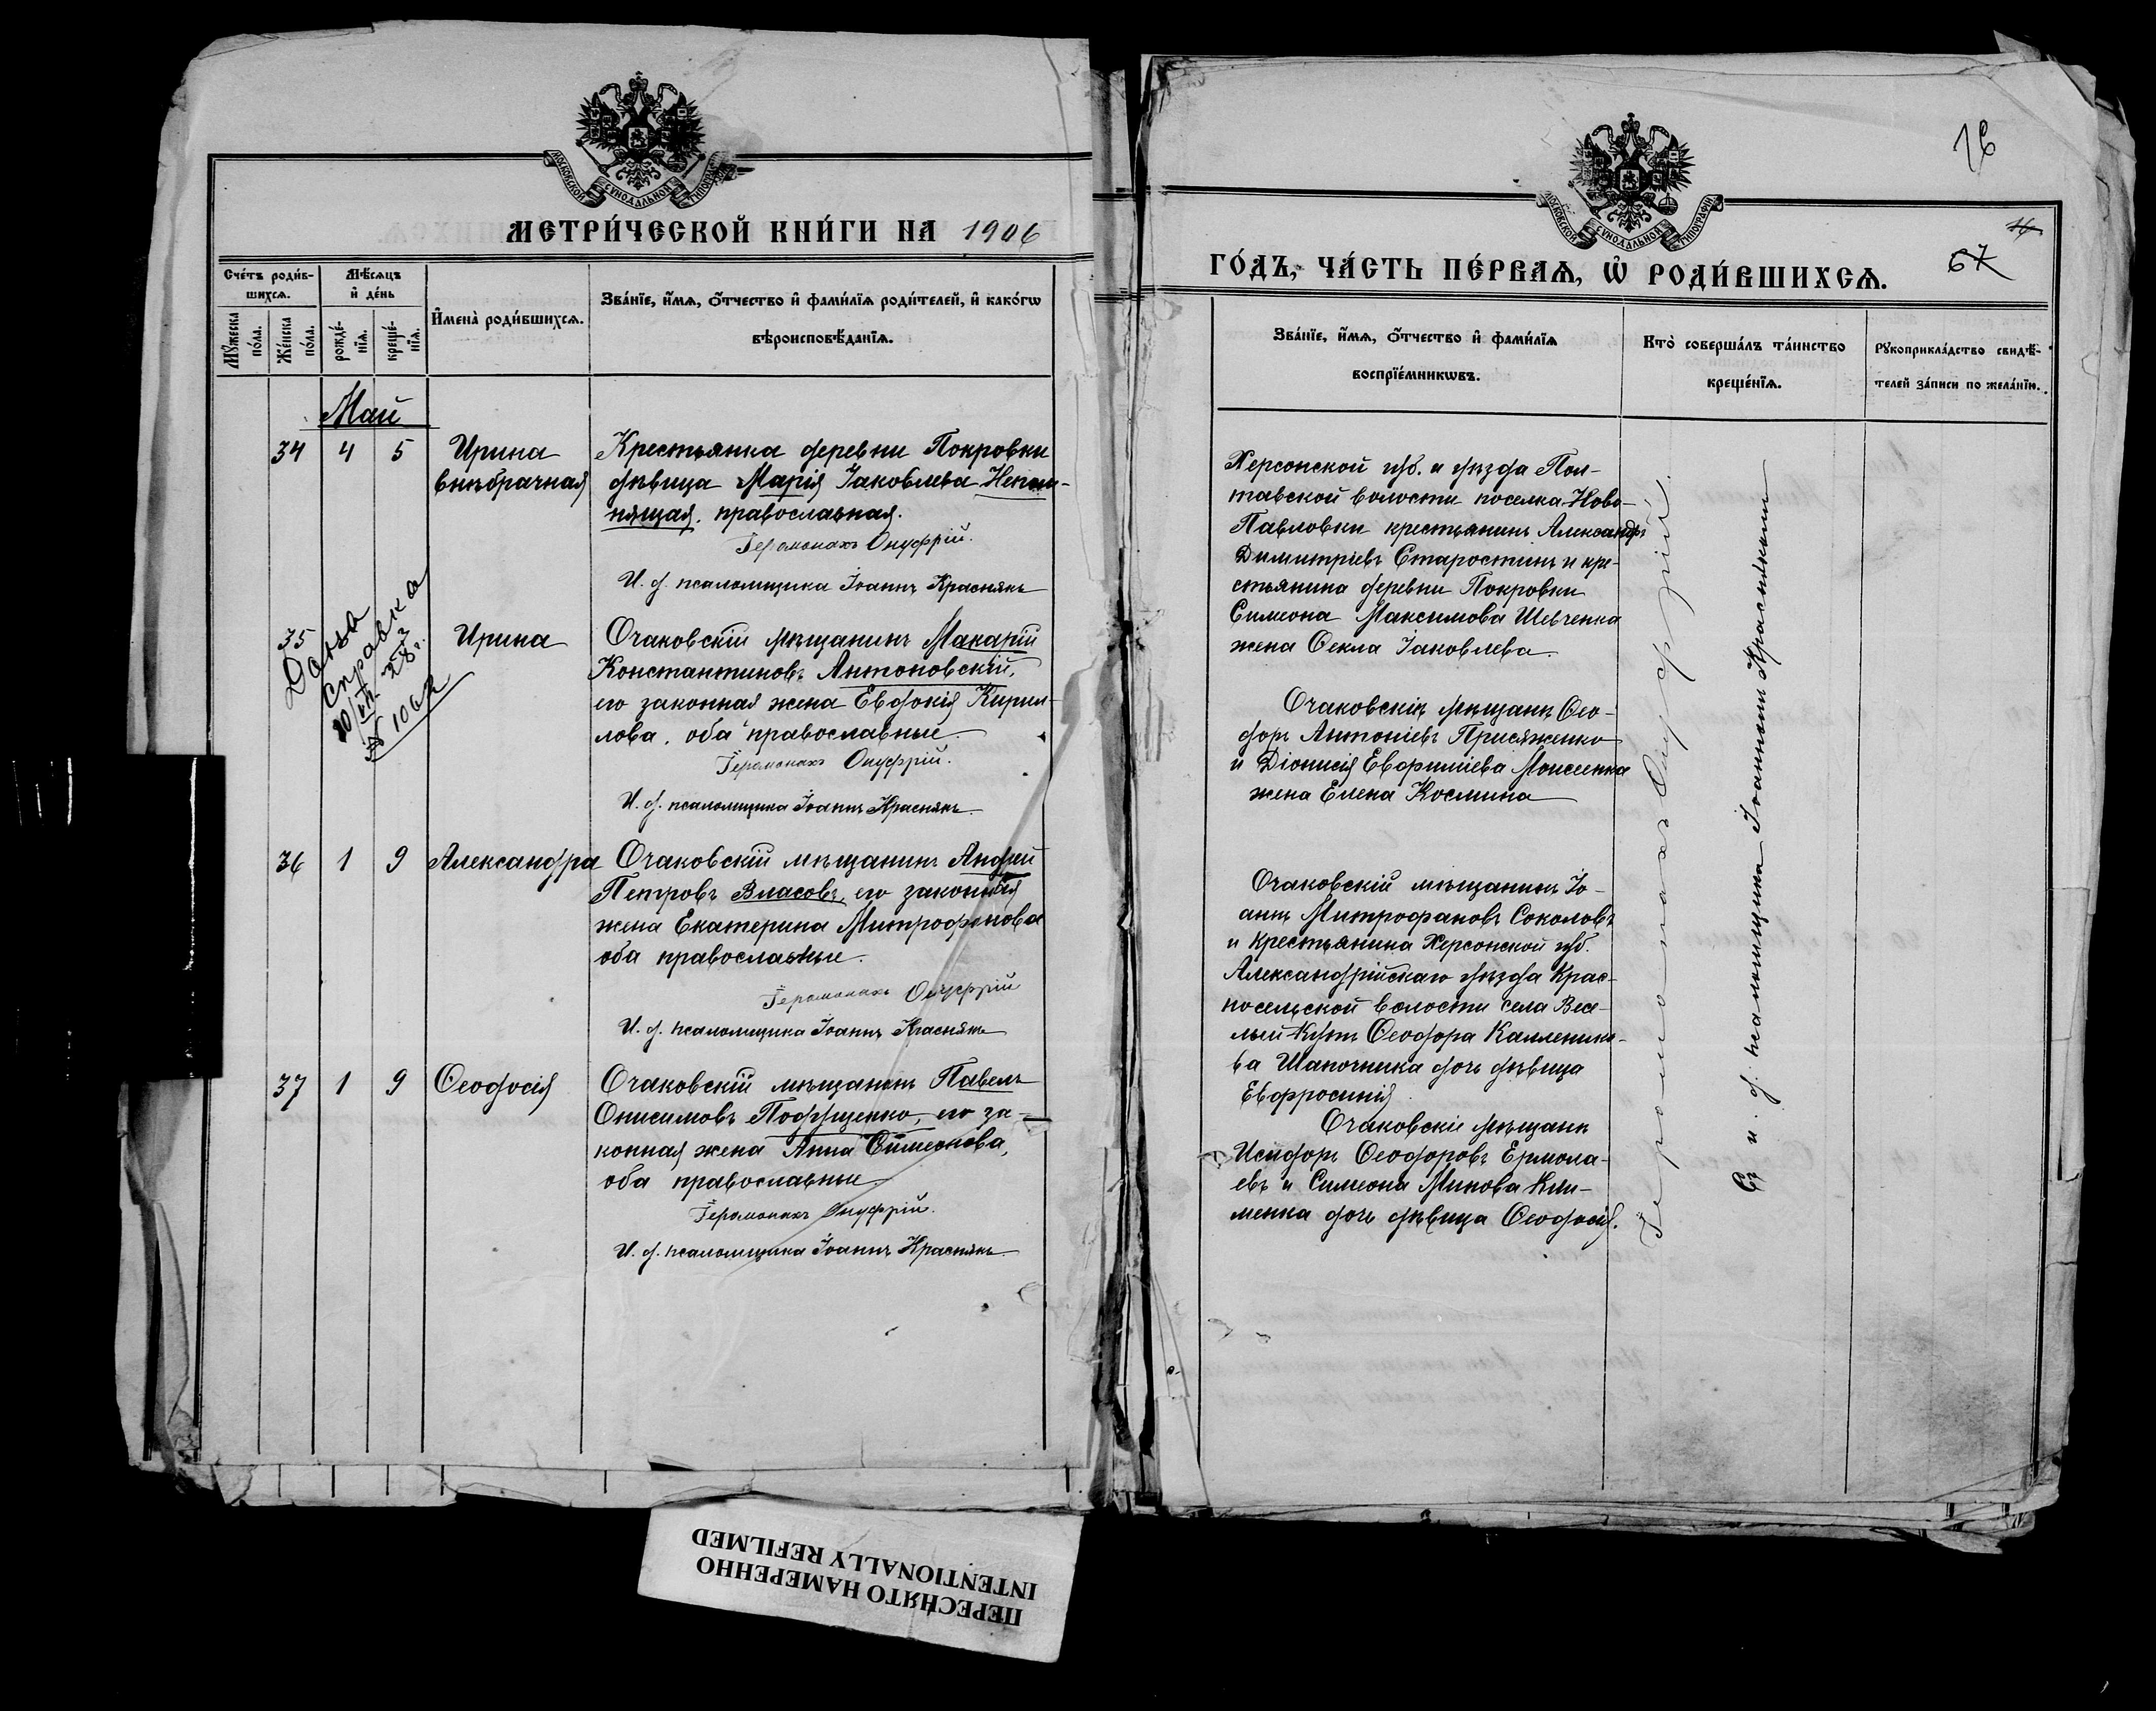 МОСКОВСКОЙ СѴНОДАЛЬНОЙ ТИПОГРАФІИ
МЕТРИ́ЧЕСКОЙ КНИ́ГИ НА 1906
Сче́тъ роди́в-
шихсѧ.
Мѣ́сѧцъ
и҆ де́нь
И҆мена̀ роди́вшихсѧ.
Зва́нїе, и҆́мѧ, ѻ҆́тчество и҆ фами́лїѧ роди́телей, и҆ како́гѡ
вѣроисповѣ́данїѧ.
Мꙋ́жеска
по́ла.
Же́нска
по́ла.
рожде́-
нїѧ.
креще́-
нїѧ.
Май
34 4 5 Ирина
внѣбрачная
Крестьянка деревни Покровки
дѣвица Марія Іаковлева Непом-
нящая, православная.
Іеромонахъ Онуфрій.
И. д. псаломщика Іоаннъ Краснякъ
35 Ирина
Дана
справка
№ 1062
Очаковскій мѣщанинъ Макарій
Константиновъ Антоновскій,
его законная жена Евдокія Кирил-
лова, оба православные
Іеромонахъ Онуфрій.
И. д. псаломщика Іоаннъ Краснякъ.
36 1 9 Александра
Очаковскій мѣщанинъ Андрей
Петровъ Власовъ, его законная
жена Екатерина Митрофанова
оба православные.
Іеромонахъ Онуфрій
И. д. псаломщика Іоаннъ Краснякъ
37 1 9 Ѳеодосія
Очаковскій мѣщанинъ Павелъ
Онисимовъ Поддубенко, его за-
конная жена Анна Симеонова,
оба православные
Іеромонахъ Онуфрій.
И. д. псаломщика Іоаннъ Краснякъ.
МОСКОВСКОЙ СѴНОДАЛЬНОЙ ТИПОГРАФІИ
16
67
ГО́ДЪ, ЧА́СТЬ ПЕ́РВАѦ, Ѡ҆ РОДИ́ВШИХСѦ.
Зва́нїе, и҆́мѧ, ѻ҆́тчество и҆ фами́лїѧ
воспрїе́мникѡвъ.
Кто̀ соверша́лъ та́инство
креще́нїѧ.
Рꙋкоприкла́дство свидѣ́-
телей за́писи по жела́нїю.
Херсонской губ. и уѣзда Пол-
тавской волости поселка Ново-
Павловки крестьянинъ Александръ
Димитріевъ Старостинъ и кре-
стьянина деревни Покровки
Симеона Максимова Шевченка
жена Ѳекла Іаковлева.
Очаковскіе мѣщане Ѳео-
доръ Антоніевъ Присяженко
и Діонисія Евфиміева Моисеенка
жена Елена Космина
Очаковскій мѣщанинъ Іо-
аннъ Митрофановъ Соколовъ
и крестьянина Херсонской губ.
Александрійскаго уѣзда Крас-
носельской волости села Весе-
лый-Кутъ Ѳеодора Каллинико-
ва Шапочника дочь дѣвица
Евфросинія.
Очаковскіе мѣщане
Исидоръ Ѳеодоровъ Ермола-
евъ и Симеона Минова Кли-
менка дочь дѣвица Ѳеодосія.
Іеромонахъ Онуфрій.
Съ и. д. псаломщика Іоанномъ Краснякомъ
ПЕРЕСНЯТО НАМЕРЕННО
INTENTIONALLY REFILMED